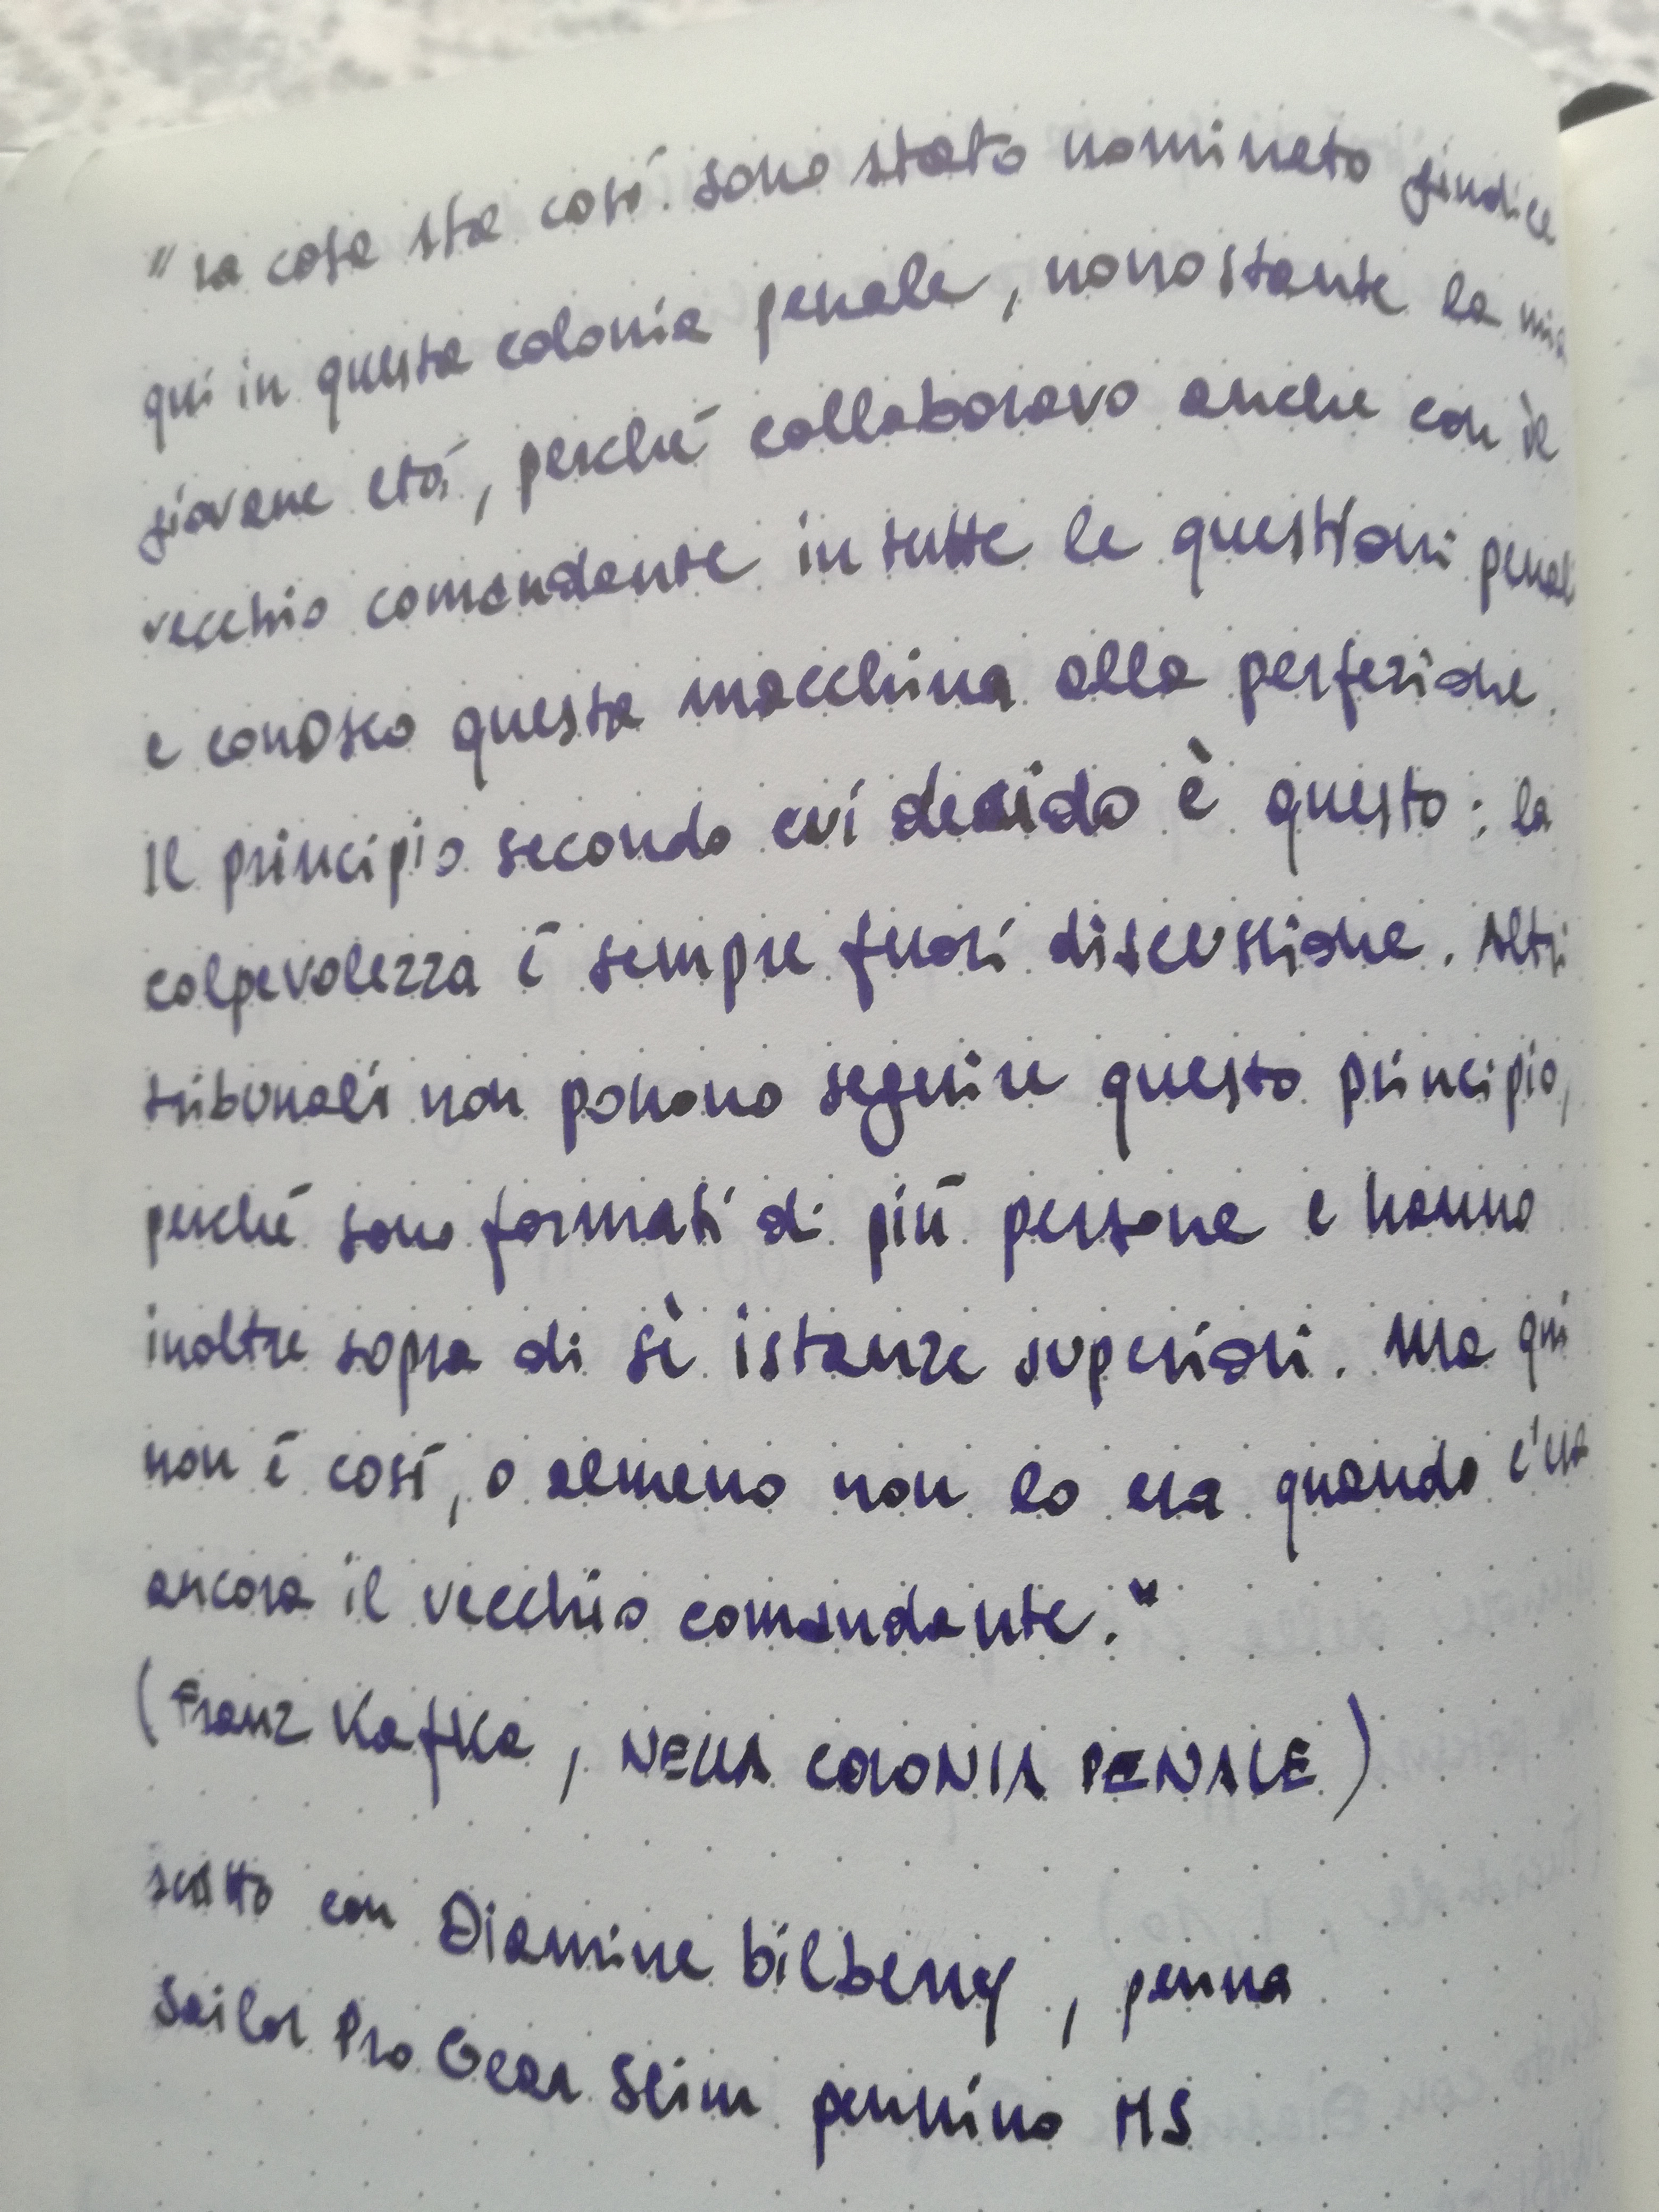 "La cosa sta così. sono stato nominato giudice
qui in questa colonia penale, nonostante la mia
giovane età, perché collaboravo anche con il
vecchio comandante in tutte le questioni penali
e conosco questa macchina alla perfezione.
Il principio secondo cui decido è questo: la
colpevolezza è sempre fuori discussione. Altri
tribunali non possono seguire questo principio,
perché sono formati di più persone e hanno
inoltre sopra di sè istanze superiori. Ma qui
non è così, o almeno non lo era quando c'era
ancora il vecchio comandante."
(Franz Kafka, NELLA COLONIA PENALE)
scritto con Diamine bilberry, penna
Sailor Pro Gear Slim pennino MS